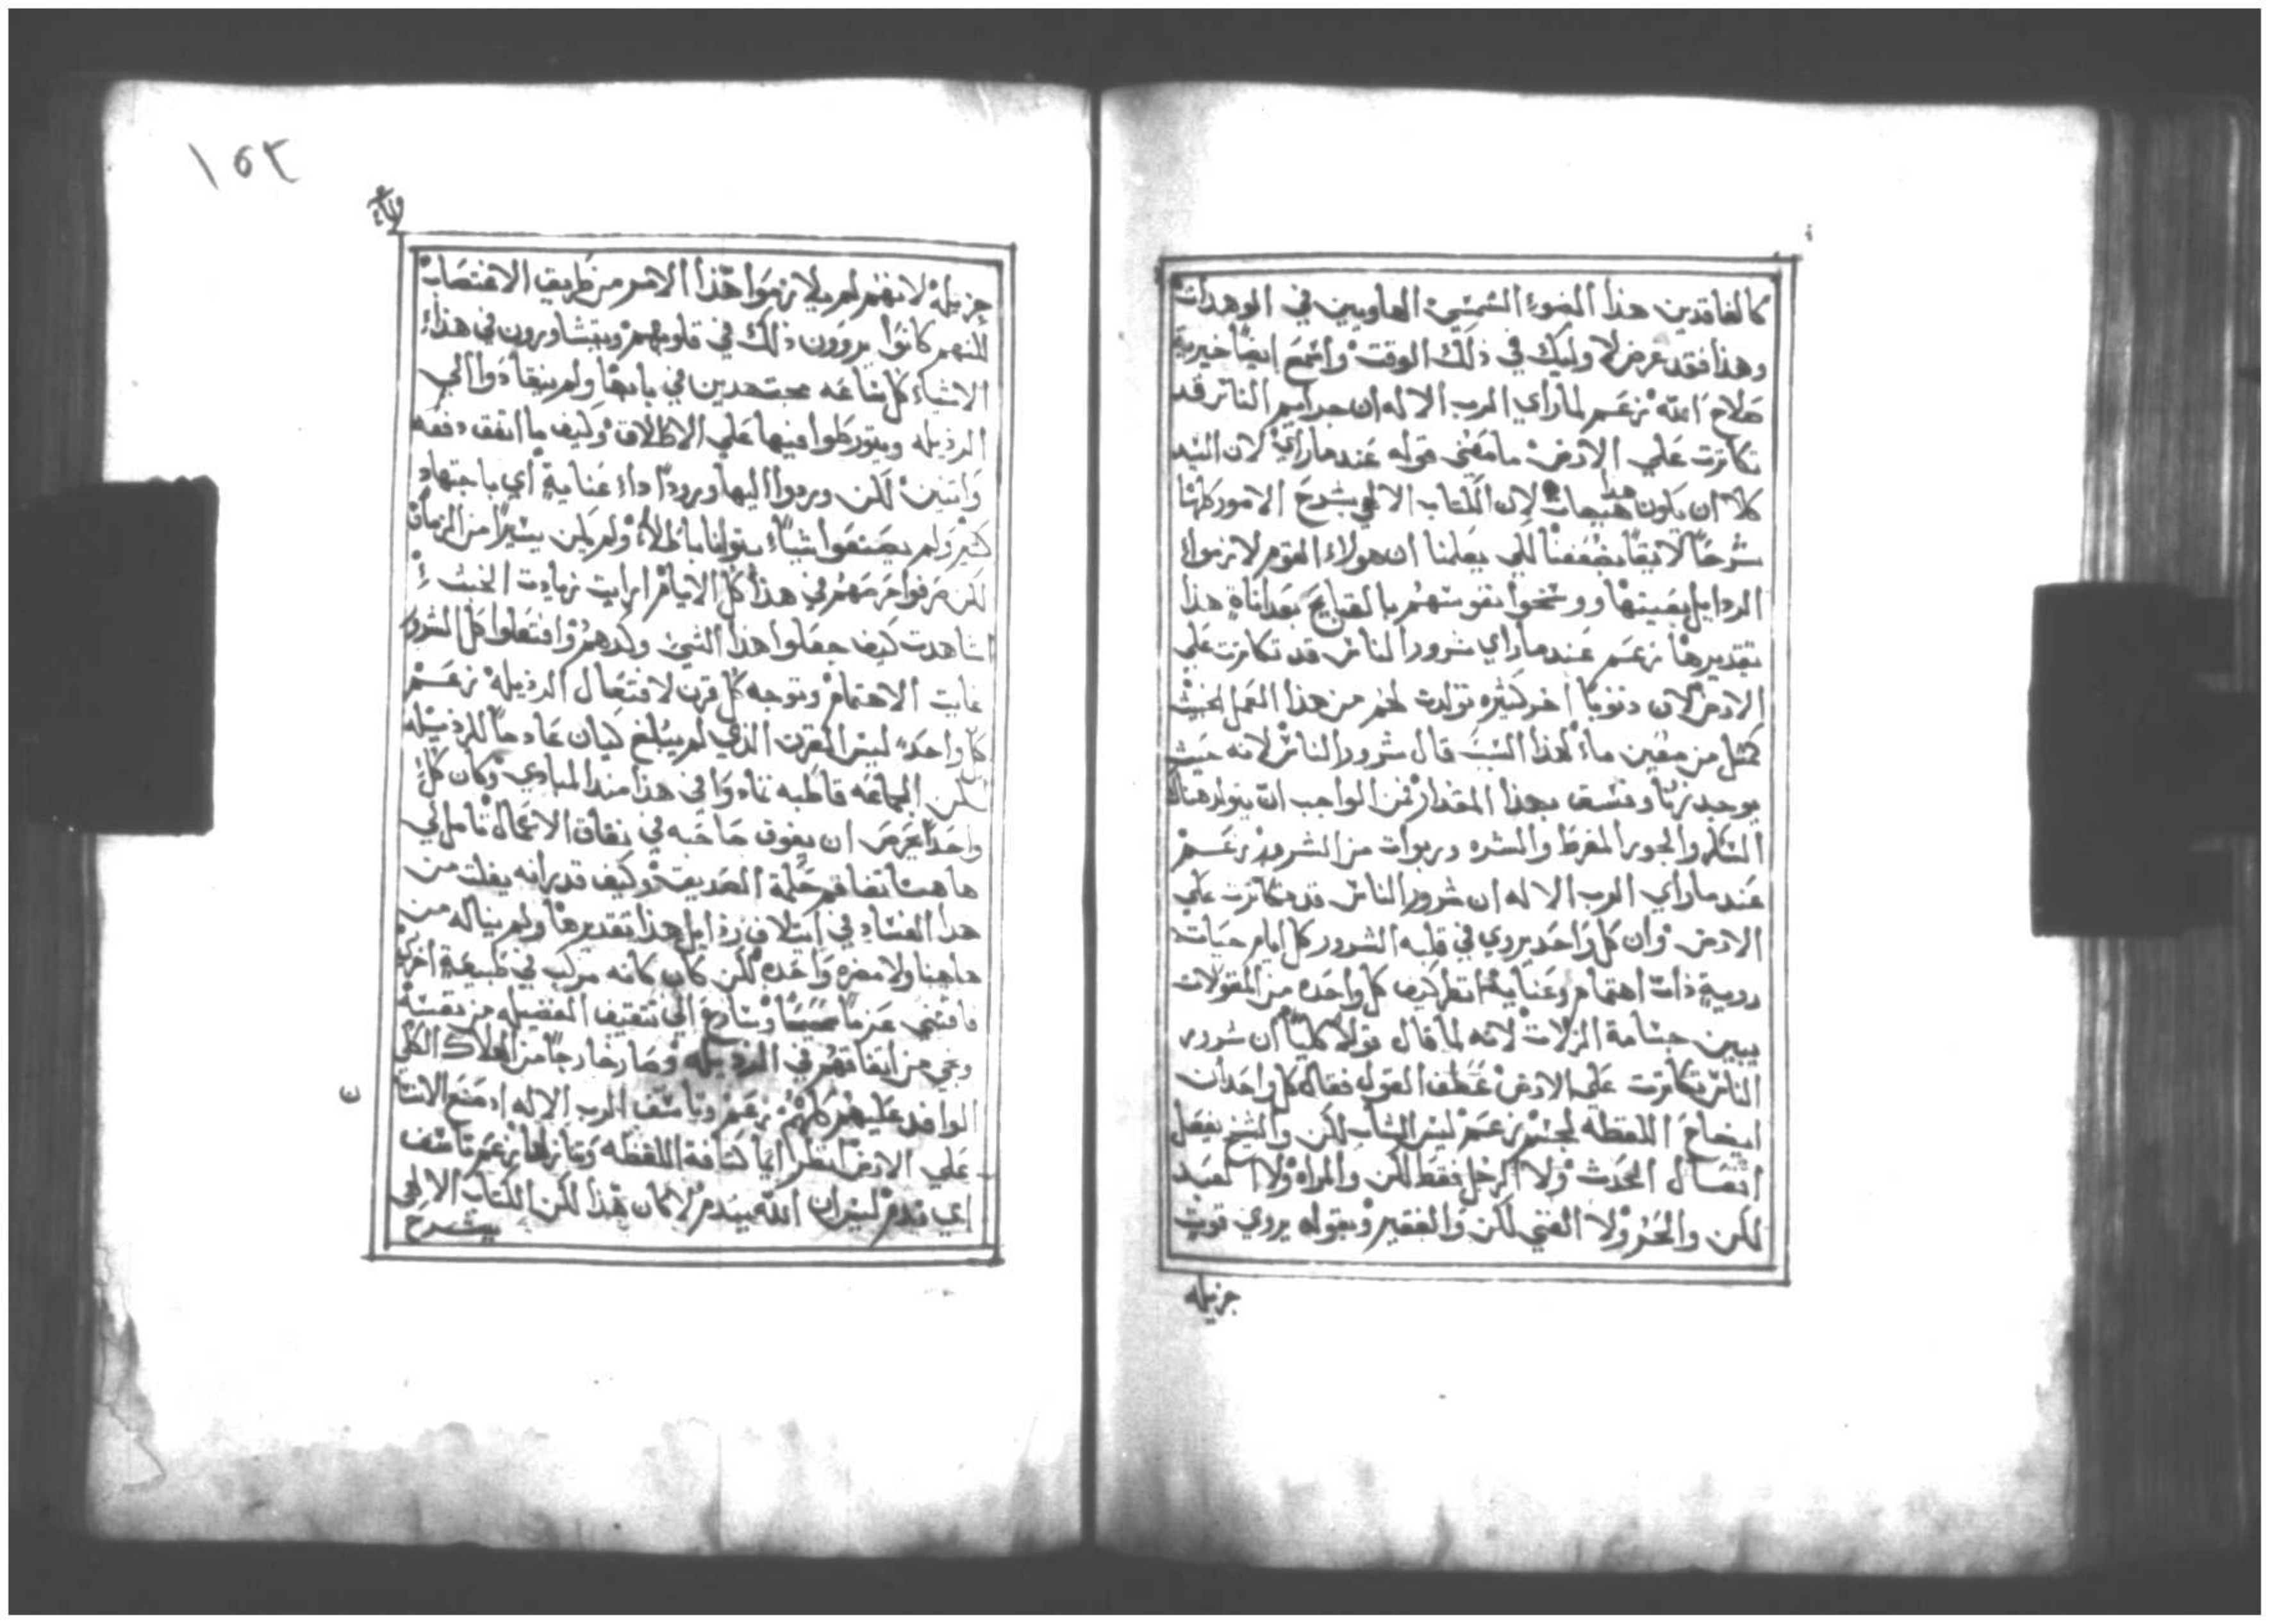 كالفاقدين هذا الضوء الشمسي الهاويين في الوهدات
وهذا فقد عرض لاوليك في ذلك الوقت واسمع ايضًا خيرية
صلاح الله زعم لما راي الرب الاله ان جرايم الناس قد
تكاثرت علي الارض ما معني قوله عندما راي لان السيد
كلا ان يكون هذا هيهات لان الكتاب الالهي يشرح الامور كلها
شرحًا لايقًا بضعفنا لكي يعلمنا ان هولاء القوم لازموا
الردايل بعينها ووسخوا نفوسهم بالقبايح بعد اناة هذا
تقديرها زعم عندما راي شرور الناس قد تكاثرت علي
الارض لان ذنوبًا اخر كثيره تولدت لهم من هذا العمل الخبيث
كمثل من معين ماء لهذا السبب قال شرور الناس لانه حيث
يوجد زنا وفسق بهذا المقدار فمن الواجب ان يتولد هناك
السكر والجور المفرط والشره وربوات من الشرور زعم
عندما راي الرب الاله ان شرور الناس قد تكاثرت علي
الارض وان كل واحد يروي في قلبه الشرور كل ايام حياته
روية ذات اهتمام وعناية انظر كيف كل واحده من المقولات
يبين جسامة الزلات لانه لما قال قولًا كليًا ان شرور
الناس تكاثرت علي الارض عطف القول فقال كل واحد ان
ايضاح اللفظة لجسيم زعم ليس الشاب لكن والشيخ يفعل
افعال الحدث ولا الرجل فقط لكن والمراه ولا العبد
لكن والحر ولا الغني لكن والفقير وبقوله يروي قوة
جزيله
١٥٢
جزيله لانهم لم يلازموا هذا الامر من طريق الاغتصاب
لكنهم كانوا يروون ذلك في قلوبهم ويتشاورون في هذه
الاشياء كل ساعه مجتهدين في بابها ولم ينقادوا الي
الرذيله ويتورطوا فيها علي الاطلاق وكيف ما اتفق دفعه
واثنين لكن وردوا اليها ورودًا ذا عناية اي باجتهاد
كثير ولم يصنعوا شياء بتوانا باطلًا ولم يكن يسيرًا من الزمان
لكن صرفوا حرصهم في هذا كل الايام ارايت زيادت الخبث
شاهدت كيف جعلوا هذا الشي وكدهم وافتعلوا كل الشرور
غايت الاهتمام وتوجه كل قرن لافتعال الرذيلة زعم
كل واحد ليس القرن الذي لم يبلغ كيان عادمًا للرذيله
لكن الجماعه قاطبه تمادوا في هذا منذ المبادي وكان كل
واحد يحرص ان يفوق صاحبه في نفاق الاعمال تامل لي
هاهنا تفاقم حكمة الصديق وكيف قدر انه يفلت من
هذا الفساد في ايتلاف رذايل هذا تقديرها ولم يناله من
هاهنا ولا مضره واحده لكن كان كانه مركب في طبيعة اخري
فاقتني عزمًا وسارع الي تثقيف الفضيله من نفسه
ونجي من اتفاقهم في الرذيله وصار خارجًا من الهلاك الكلي
الوافد عليهم كلهم زعم وتاسف الرب الاله اذ صنع الانسان
علي الارض انظر ايما كثافة اللفظه وتنازلها زعم تاسف
اي ندم ليس ان الله يندم لا كان هذا لكن الكتاب الالهي
يشرح